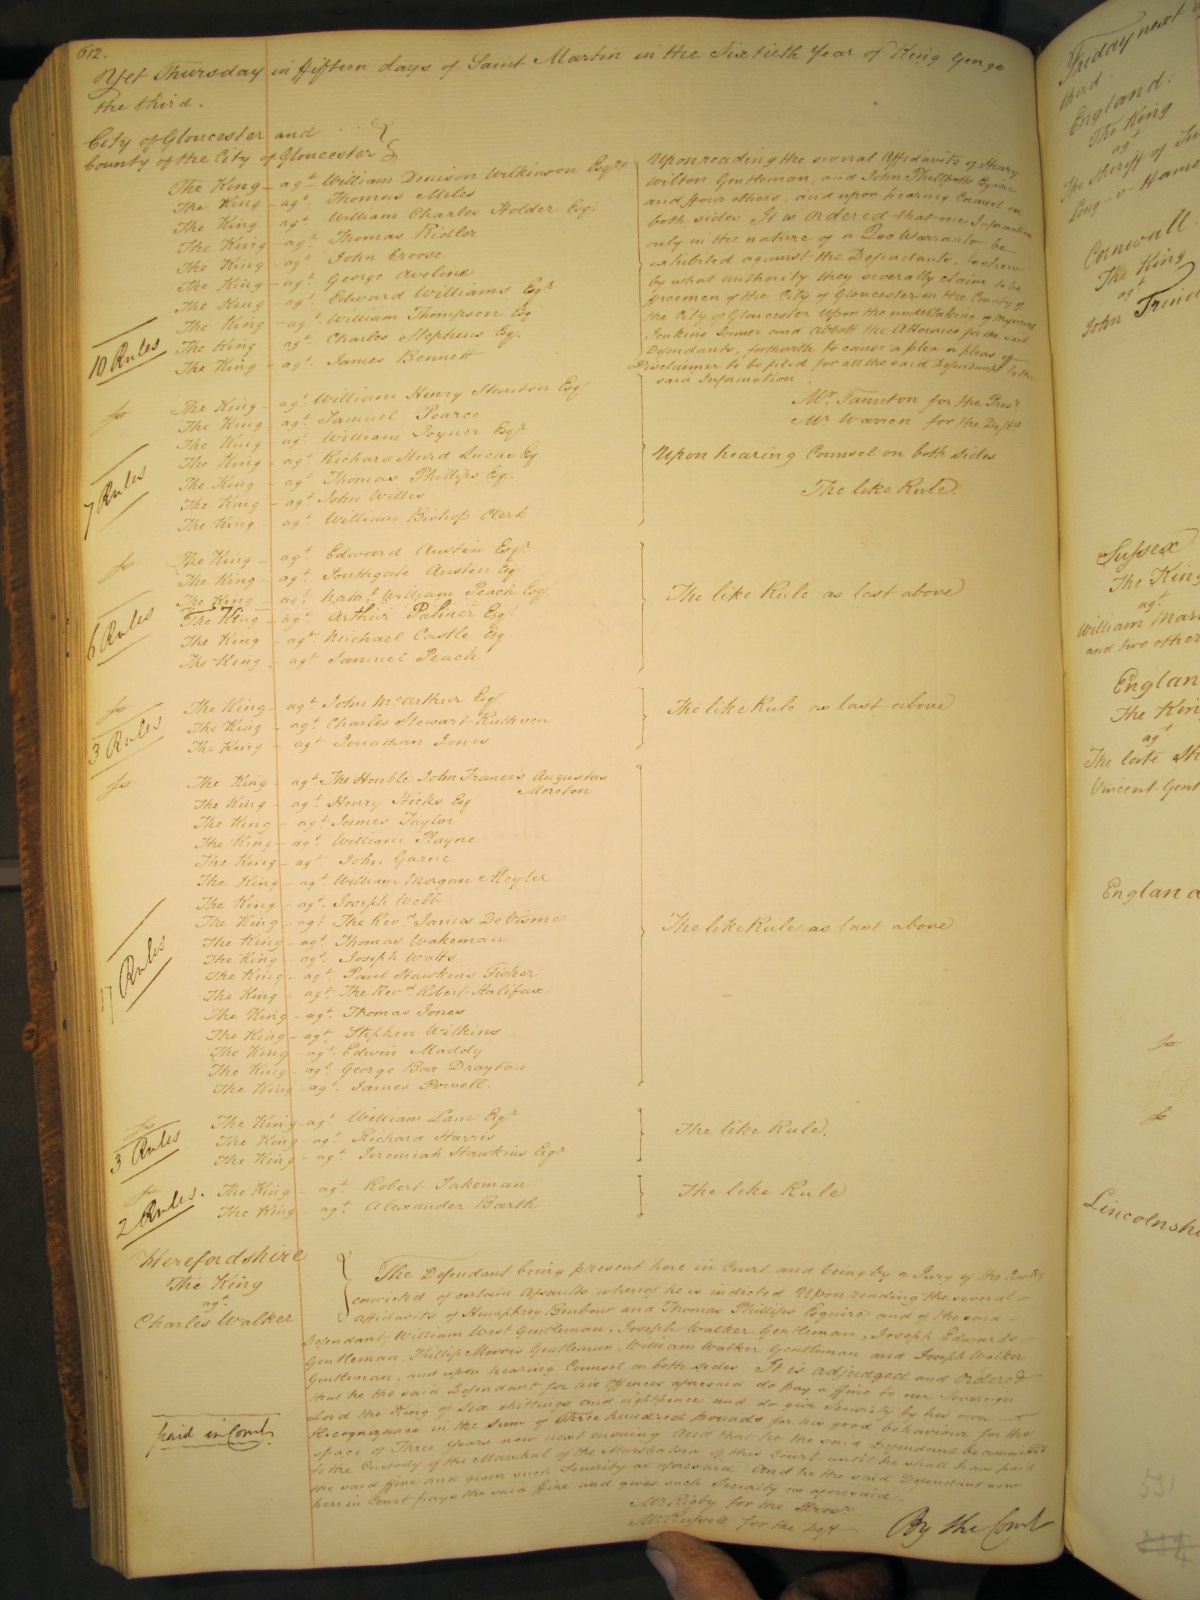 612.
Yet Thursday in fifteen days of Saint Martin in the Sixtieth Year of King George
the third.
City of Gloucester and
County of the City of Gloucester
The King - agt. William Denison Wilkinson Esqre
The King - agt. Thomas Miles
The King - agt. William Charles Holder Esqr.
The King - agt. Thomas Ridler
The King - agt. John Croose
The King - agt. George Aveline
The King - agt. Edward Williams Esqr
The King - agt. William Thompson Esq
The King - agt. Charles Stephens Esq.
10 Rules
The King - agt. James Bennett
Upon reading the several Affidavits of Henry
Wilton Gentleman, and John Phillpotts Esquire
and four others, and upon hearing Counsel on
both sides It is Ordered that one Information
only in the nature of a Quo Warranto be
exhibited against the Defendants, to shew
by what authority they severally claim to be
freemen of the City of Gloucester in the County of
the City of Gloucester Upon the undertaking of Messieurs
Jenkins James and Abbott the Attornies for the said
Defendants, forthwith to cause a plea or pleas of
Disclaimer to be filed for all the said Defendants to the
said Information
Mr. Taunton for the Prosr.
Mr. Warren for the Defts
The King - agt. William Henry Stanton Esqr
The King - agt. Samuel Pearce
The King - agt. William Joyner Esqr.
The King - agt. Richard Hurd Lucas Esq
7 Rules
The King - agt. Thomas Phillips Esq.
The King - agt. John Willis
The King - agt. William Bishop Clerk
Upon hearing Counsel on both sides
The like Rule.
The King - agt. Edward Austin Esqr.
The King - agt. Southgate Austen Esq
The King - agt. Nathl. William Peach Esqr.
The King - agt. Arthur Palmer Esqr.
6 Rules
The King - agt. Michael Castle Esq
The King - agt. Samuel Peach
The like Rule as last above
The King - agt. John McArthur Esqr
The King - agt. Charles Stewart Ruthven
3 Rules
The King - agt. Jonathan Jones
The like Rule as last above
The King - agt. The Honble John Francis Augustus
Moreton
The King - agt. Henry Hicks Esq
The King - agt. James Taylor
The King - agt. William Playne
The King - agt. John Garne
The King - agt. William Morgan Meyler
The King - agt. Joseph Webb
The King - agt. The Revd. James De Visme
The King - agt. Thomas Wakeman
The King - agt. Joseph Watts
17 Rules
The King - agt. Paul Hawkins Fisher
The King - agt. The Revd Robert Halifax
The King - agt. Thomas Jones
The King - agt. Stephen Wilkins
The King - agt. Edwin Maddy
The King - agt. George Box Drayton
The King - agt. James Powell.
The like Rule as last above
The King - agt. William Lane Esqr
The King - agt. Richard Harris
3 Rules
The King - agt. Jeremiah Hawkins Esqr
The like Rule.
The King - agt. Robert Jakeman
2 Rules.
The King - agt. Alexander Barth
The like Rule
Herefordshire
The King
agt.
Charles Walker
The Defendant being present here in Court and being by a Jury of the Country
convicted of certain Assaults whereof he is indicted Upon reading the several
Affidavits of Humphrey Benbow and Thomas Phillips Esquire and of the said
Defendant William West Gentleman, Joseph Walker Gentleman, Joseph Edwards
Gentleman, Phillip Morris Gentleman, William Walker Gentleman and Joseph Walker
Gentleman, and upon hearing Counsel on both sides It is adjudged and Ordered
that he the said Defendant for his Offences aforesaid do pay a fine to our Sovereign
Lord the King of Six shillings and eightpence and do give Security by his own
Recognizance in the sum of Three hundred pounds for his good behaviour for the
space of Three Years now next ensuing And that he the said Defendant be committed
to the Custody of the Marshal of the Marshalsea of this Court until he shall have paid
the said fine and given such Security as aforesaid And he the said Defendant now
here in Court pays the said fine and gives such Security as aforesaid.
paid in Court
Mr. Rigby for the Prosr.
Mr. Russell for the Deft
By the Court
Friday next
third.
England.
The King
agt.
The Sheriff of
Cornwall.
The King
agt
John
Sussex
The King
agt.
William
and two other
England
The King
agt
The late
Vincent Gent
England
Lincolnshi
531